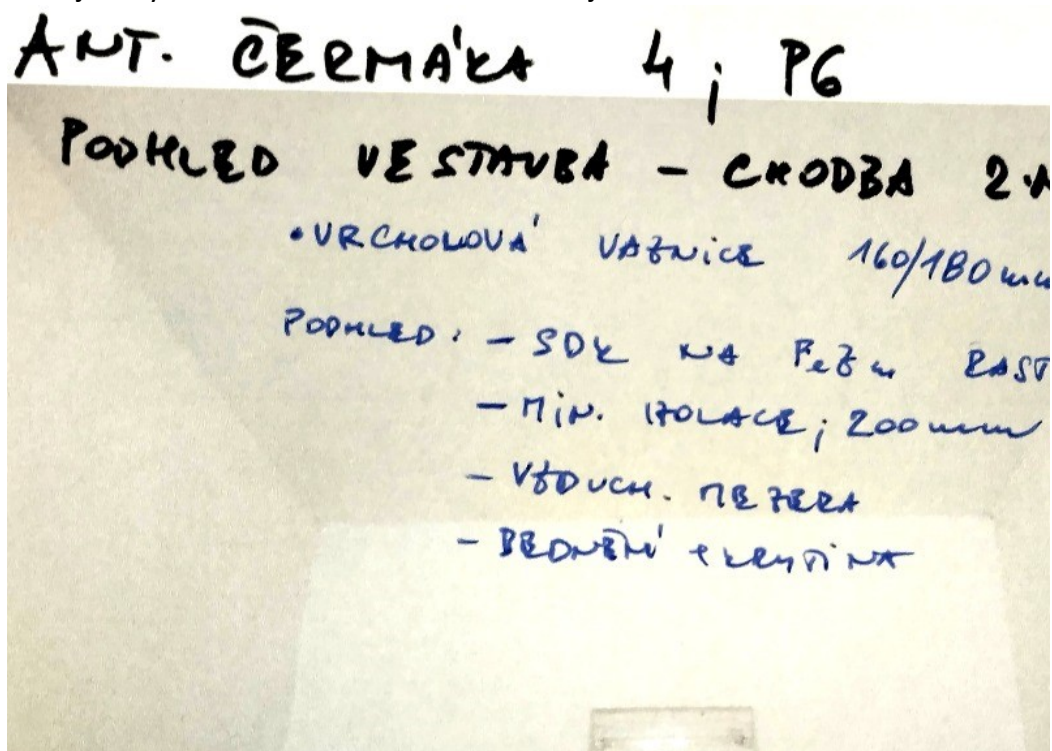 ANT. ČERMÁKA 4; P6
PODHLED VESTAVBA - CHODBA 2.N
• VRCHOLOVÁ VAZNICE 160/180mm
PODHLED: - SDK NA FeZn RAST
- MIN. IZOLACE; 200mm
- VZDUCH. MEZERA
- BEDNĚNÍ + KRYTINA